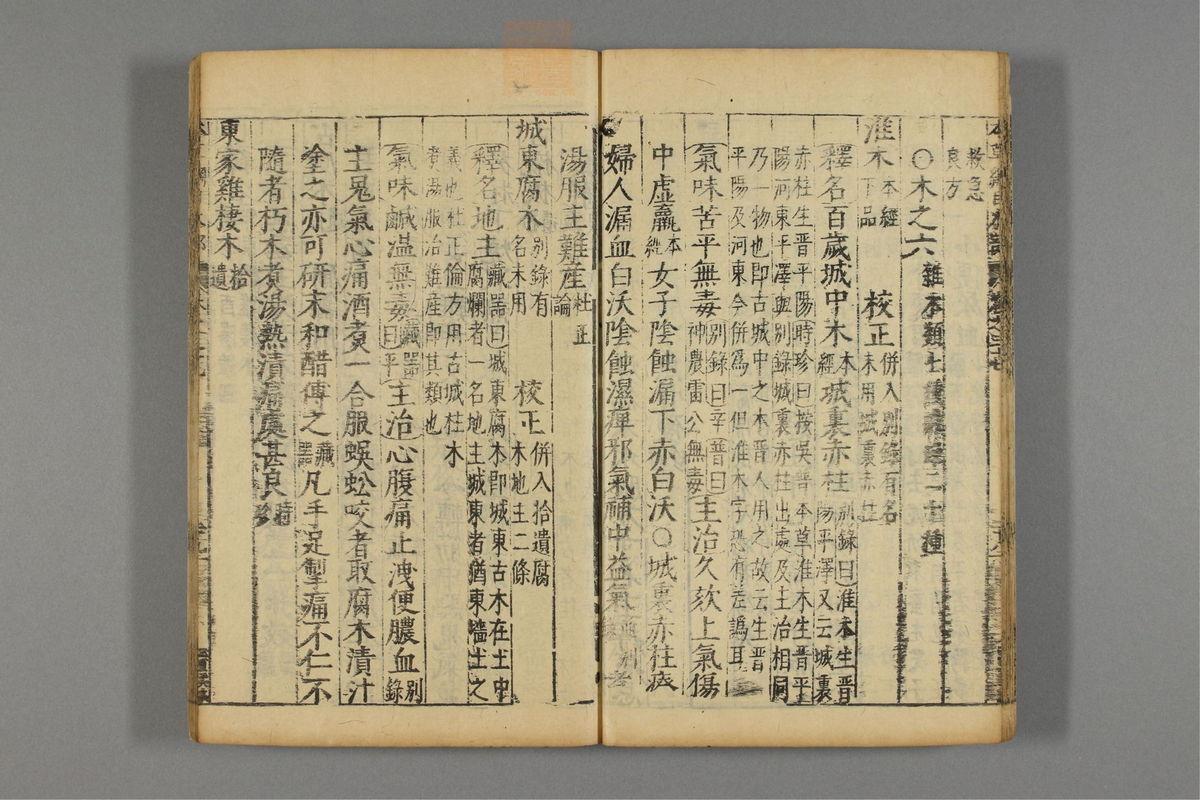 救急
良方
○木之六 雜木類七種 二十種
淮木 本經下品 校正 併入別錄有名未用城裏赤柱
釋名百歲城中木 本經 城裏赤柱 別錄曰淮木生晉陽平澤又云城裏
赤柱生晉平陽時珍曰按吳普本草淮木生晉平
陽河東平澤與別錄城裏赤柱出處及主治相同
乃一物也即古城中之木晉人用之故云生晉
平陽及河東今併爲一但淮木字恐有差譌耳
氣味苦平無毒 別錄曰辛普曰神農雷公無毒 主治久欬上氣傷
中虛羸 本經 女子陰蝕漏下赤白沃○城裏赤柱療
婦人漏血白沃陰蝕濕痺邪氣補中益氣
湯服主難產 杜正論
城東腐木 別錄有名未用 校正 併入拾遺腐木地主二條
釋名地主 藏器曰城東腐木即城東古木在土中腐爛者一名地主城東者猶東墻土之
義也杜正倫方用古城柱木
者湯服治難產即其類也
氣味鹹溫無毒 藏器曰平 主治心腹痛止洩便膿血 別錄
主鬼氣心痛酒煮一合服蜈蚣咬者取腐木漬汁
塗之亦可研末和醋傅之 藏器 凡手足掣痛不仁不
隨者朽木煮湯熱漬痛處甚良 時珍
東家雞棲木 拾遺